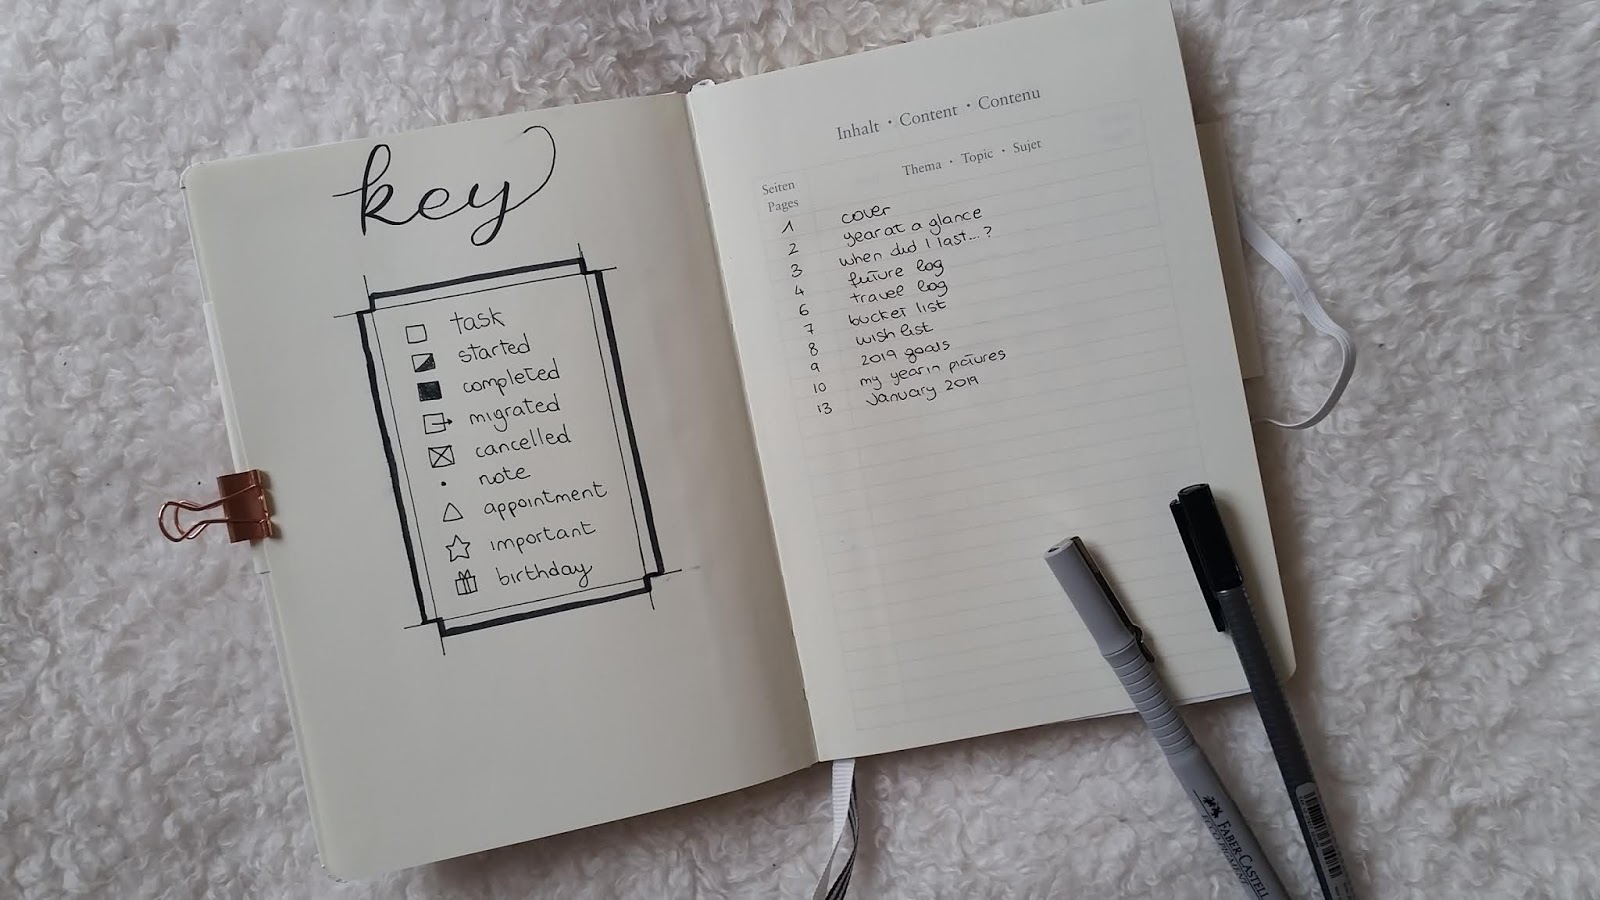 key
task
started
completed
migrated
cancelled
note
appointment
important
birthday
Inhalt · Content · Contenu
Thema · Topic · Sujet
Seiten
Pages
1 cover
2 year at a glance
3 when did I last...?
4 future log
6 travel log
7 bucket list
8 wish list
9 2019 goals
10 my year in pictures
13 january 2019
FABER-CASTELL
ECCO PIGMENT